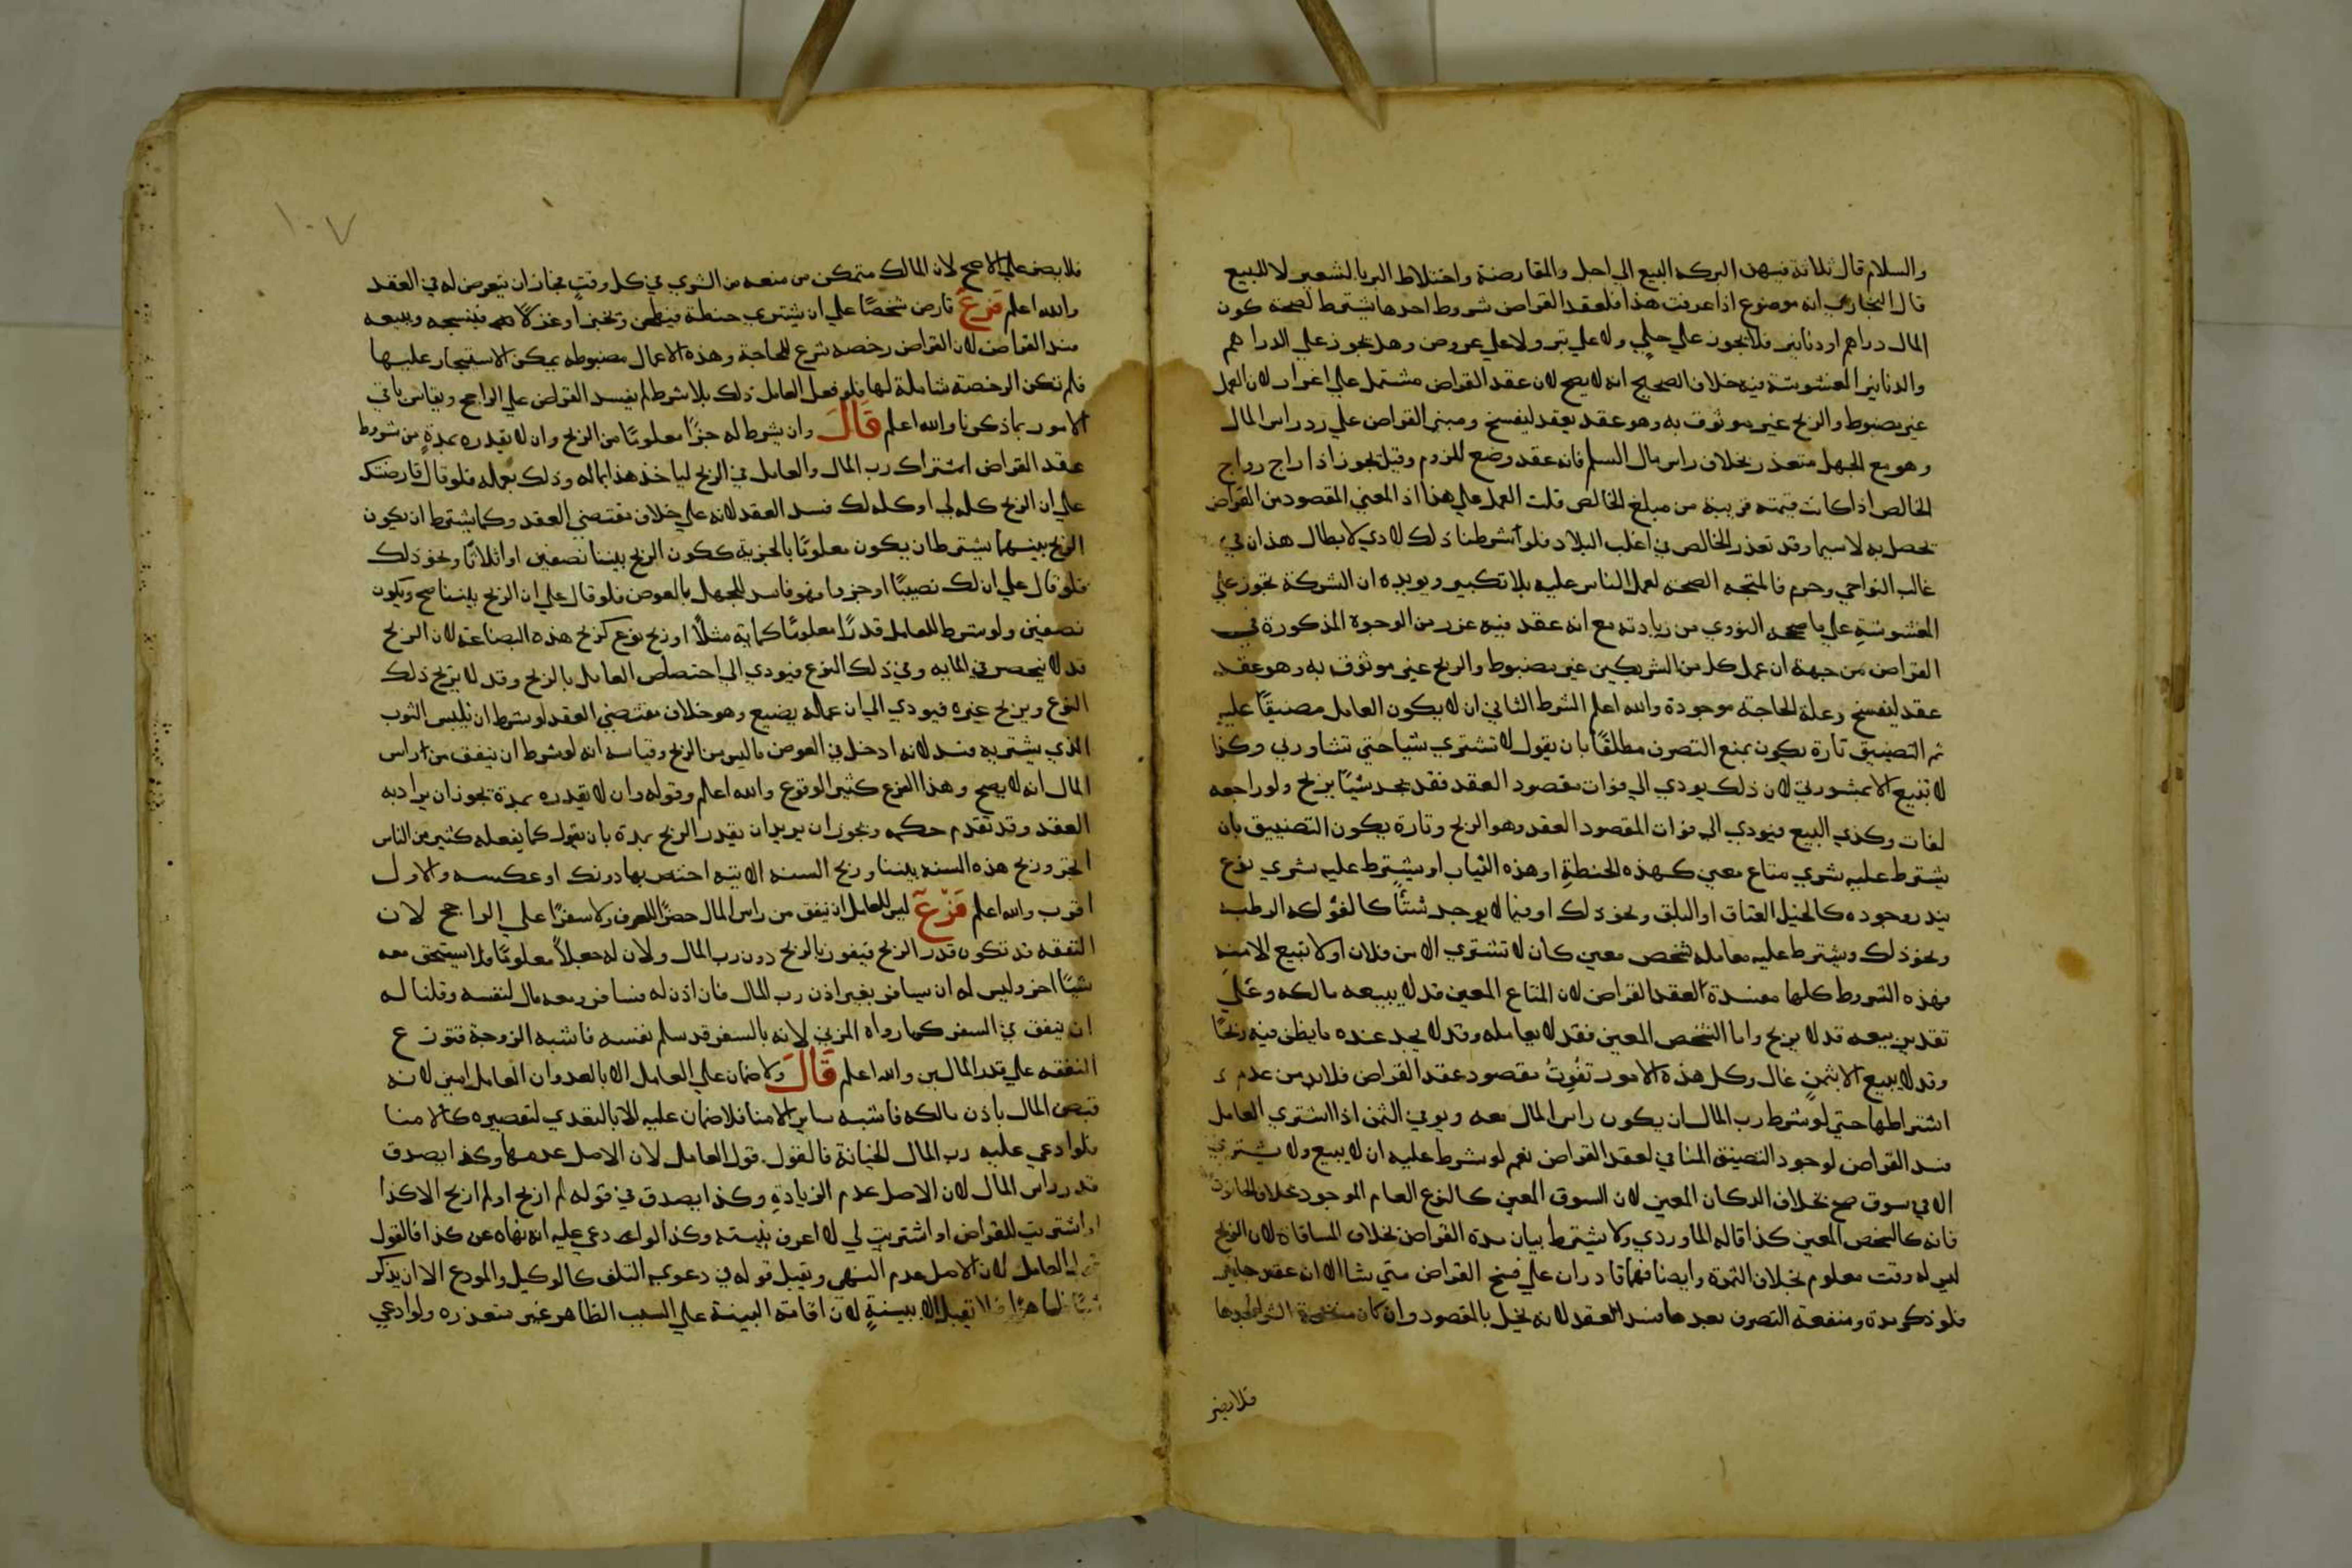 والسلام قال ثلاثة فيهن البركه البيع الي اجل والمقارضة واختلاط البر بالشعير لا للبيع
قال البخاري انه موضوع اذا عرفت هذا فلعقد القراض شروط احدها يشترط لصحته كون
المال دراهم او دنانير فلا يجوز علي حلي ولا علي تبر ولا علي عروض وهل يجوز علي الدراهم
والدنانير المغشوشة فيه خلاف الصحيح انه لا يصح لان عقد القراض مشتمل علي اغرار لان العمل
غير مضبوط والربح غير موثوق به وهو عقد يعقد ليفسخ ومبني القراض علي رد راس المال
وهو مع الجهل متعذر بخلاف راس مال السلم فانه عقد وضع للزوم وقيل يجوز اذا راج رواج
الخالص اذا كانت قيمته قريبة من مبلغ الخالص قلت العمل علي هذا اذ المعني المقصود من القراض
يحصل به لاسيما وقد تعذر الخالص في اغلب البلاد فلو اشرطنا ذلك لادي لابطال هذان في
غالب النواحي وحرم فالمتجه الصحه لعمل الناس عليه بلا تكبير ويويده ان الشركة تجوز علي
المغشوشة علي ما صححه النووي من زيادته مع انه عقد فيه غرر من الوجوه المذكورة في
القراض من جهة ان عمل كل من الشريكين غير مضبوط والربح غير موثوق به وهو عقد
عقد ليفسخ وعلة الحاجة موجودة والله اعلم الشرط الثاني ان لا يكون العامل مضيقا عليه
ثم التضييق تارة يكون بمنع التصرف مطلقا بان يقول لا تشتري شيا حتي تشاورني وكذا
لا تبيع الا بمشورتي لان ذلك يودي الي فوات مقصود العقد فقد يجد شيا يربح ولو راجعه
لفات وكذي البيع فيودي الي فوات المقصود العقد وهو الربح وتارة يكون التضييق بان
يشترط عليه شري متاع معين كهذه الحنطة او هذه الثياب او يشترط عليه شري نوع
يندر وجوده كالخيل العتاق او البلق ونحو ذلك او فيما لا يوجد شتأ كالفواكه الرطبه
ونحو ذلك ويشترط عليه معاملة شخص معين كان لا تشتري الا من فلان او لا تبيع الا منه
فهذه الشروط كلها مفسدة العقد القراض لان المتاع المعين قد لا يبيعه مالكه وعلي
تقدير بيعه قد لا يربح واما الشخص المعين فقد لا يعامله وقد لا يجد عنده ما يظن فيه ربحا
وقد لا يبيع الا بثمن غال وكل هذه الامور تفوت مقصود عقد القراض فلابد من عدم
اشتراطها حتي لو شرط رب المال ان يكون راس المال معه ويوفي الثمن اذا اشتري العامل
فسد القراض لوجود التضييق المنافي لعقد القراض نعم لو شرط عليه ان لا يبيع ولا يشتري
الا في سوق صح بخلاف الدكان المعين لان السوق المعين كالنوع العام الموجود بخلاف الحانوت
فانه كالشخص المعين كذا قاله الماوردي ولا يشترط بيان مدة القراض بخلاف المساقاة لان الربح
ليس له وقت معلوم بخلاف الثمرة وايضا فهما قادران علي فسخ القراض متي شاا لانه عقد جايز
فلو ذكر مدة ومنفعة التصرف بعدها فسد العقد لانه يخل بالمقصود وان كان منعه الشراء بعدها
فلا يضر
١٠٧
فلا يضر علي الاصح لان المالك متمكن من منعه من الشري في كل وقت فجاز ان يتعرض له في العقد
والله اعلم فرع قارض شخصا علي ان يشتري حنطة فيطحن ويخبز او غزلا فينسجه ويبيعه
فسد القراض لان القراض رخصه شرع للحاجة وهذه الاعمال مضبوطه يمكن الاستيجار عليها
فلم تكن الرخصة شاملة لها فلو فعل العامل ذلك بلا شرط لم يفسد القراض علي الراجح ويقاس باقي
الامور بما ذكرنا والله اعلم قال وان يشرط له جزا معلوما من الربح وان لا يقدره بمدة من شروط
عقد القراض اشتراك رب المال والعامل في الربح لياخذ هذا بماله وذلك بعمله فلو قال قارضتك
علي ان الربح كله لي او كله لك فسد العقد لانه علي خلاف مقتضي العقد وكما يشترط ان يكون
الربح بينهما يشترط ان يكون معلوما بالجزية ككون الربح بيننا نصفين او اثلاثا ونحو ذلك
فلو قال علي ان لك نصيبا او جزوا فهو فاسد للجهل بالعوض فلو قال علي ان الربح بيننا صح ويكون
نصفين ولو شرط للعامل قدرا معلوما كماية مثلا او ربح نوع كربح هذه البضاعة لان الربح
قد لا ينحصر في المايه وفي ذلك النوع فيودي الي اختصاص العامل بالربح وقد لا يربح ذلك
النوع ويربح غيره فيودي الي ان عمله يضيع وهو خلاف مقتضي العقد لو شرط ان يلبس الثوب
الذي يشتريه فسد لانه ادخل في العوض ما ليس من الربح وقياسه انه لو شرط ان ينفق من راس
المال انه لا يصح وهذا الفرع كثير الوقوع والله اعلم وقوله وان لا يقدره بمدة يجوز ان يراد به
العقد وقد تقدم حكمه ويجوز ان يريد ان يقدر الربح بمدة بان يقول كما يفعله كثير من الناس
اتجر وربح هذه السنه بيننا وربح السنه الاتيه اختص بها دونك او عكسه والاول
اقرب والله اعلم فرع ليس للعامل ان ينفق من راس المال حضرا للعرف ولا سفرا علي الراجح لان
النفقه قد تكون قدر الربح فيفوز بالربح دون رب المال ولان له جعلا معلوما فلا يستحق معه
شيا اخر وليس له ان يسافر بغير اذن رب المال فان اذن له فسافر ومعه مال لنفسه وقلنا له
ان ينفق في السفر كما رواه المزني لانه بالسفر قد سلم نفسه فاشبه الزوجة فتوزع
النفقه علي قدر المالين والله اعلم قال ولا ضمان علي العامل الا بالعدوان العامل امين لانه
قبض المال باذن مالكه فاشبه ساير الامنا فلا ضمان عليه الا بالتعدي لتقصيره كالامنا
فلو ادعي عليه رب المال الخيانة فالقول قول العامل لان الاصل عدمها وكذا يصدق
قدر راس المال لان الاصل عدم الزيادة وكذا يصدق في قوله لم اربح او لم اربح الا كذا
او اشتريت للقراض او اشتريت لي لانه اعرف بنيته وكذا لو ادعي عليه انه نهاه عن كذا فالقول
قول العامل لان الاصل عدم النهي ويقبل قوله في دعوي التلف كالوكيل والمودع الا ان يذكر
شيا ظاهرا فلا تقبل الا ببينة لان اقامة البينة علي السبب الظاهر غير متعذره ولو ادعي